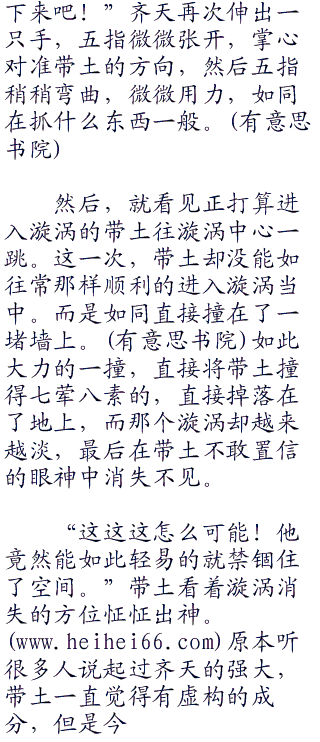 下来吧！”齐天再次伸出一
只手，五指微微张开，掌心
对准带土的方向，然后五指
稍稍弯曲，微微用力，如同
在抓什么东西一般。(有意思
书院)
然后，就看见正打算进
入漩涡的带土往漩涡中心一
跳。这一次，带土却没能如
往常那样顺利的进入漩涡当
中。而是如同直接撞在了一
堵墙上。(有意思书院)如此
大力的一撞，直接将带土撞
得七荤八素的，直接掉落在
了地上，而那个漩涡却越来
越淡，最后在带土不敢置信
的眼神中消失不见。
“这这这怎么可能！他
竟然能如此轻易的就禁锢住
了空间。”带土看着漩涡消
失的方位怔怔出神。
(www.heihei66.com)原本听
很多人说起过齐天的强大，
带土一直觉得有虚构的成
分，但是今